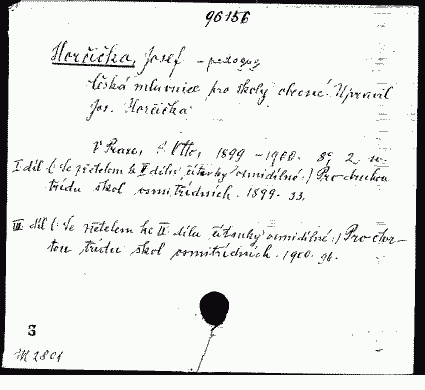 96156
Horčička, Josef - pedagog
Česká mluvnice pro školy obecné. Upravil
Jos. Horčička
V Praze, J. Otto, 1899 - 1900. 8°, 2 sv.
I díl (: Se zřetelem k II dílu čítanky osmidílné :) Pro druhou
třídu škol osmitřídních. 1899. 33.
III díl (: Se zřetelem ke II dílu čítanky osmidílné :) Pro čtvr-
tou třídu škol osmitřídních. 1900. 96.
S
M 2801